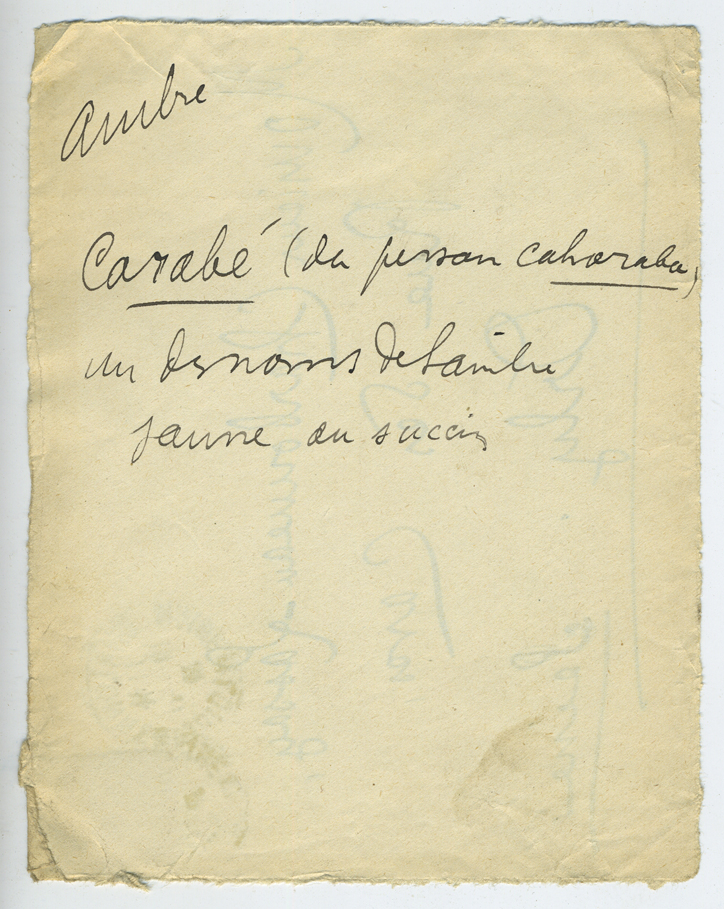 Ambre
Carabé (du persan caharaba)
un des noms de l'ambre
jaune ou succin